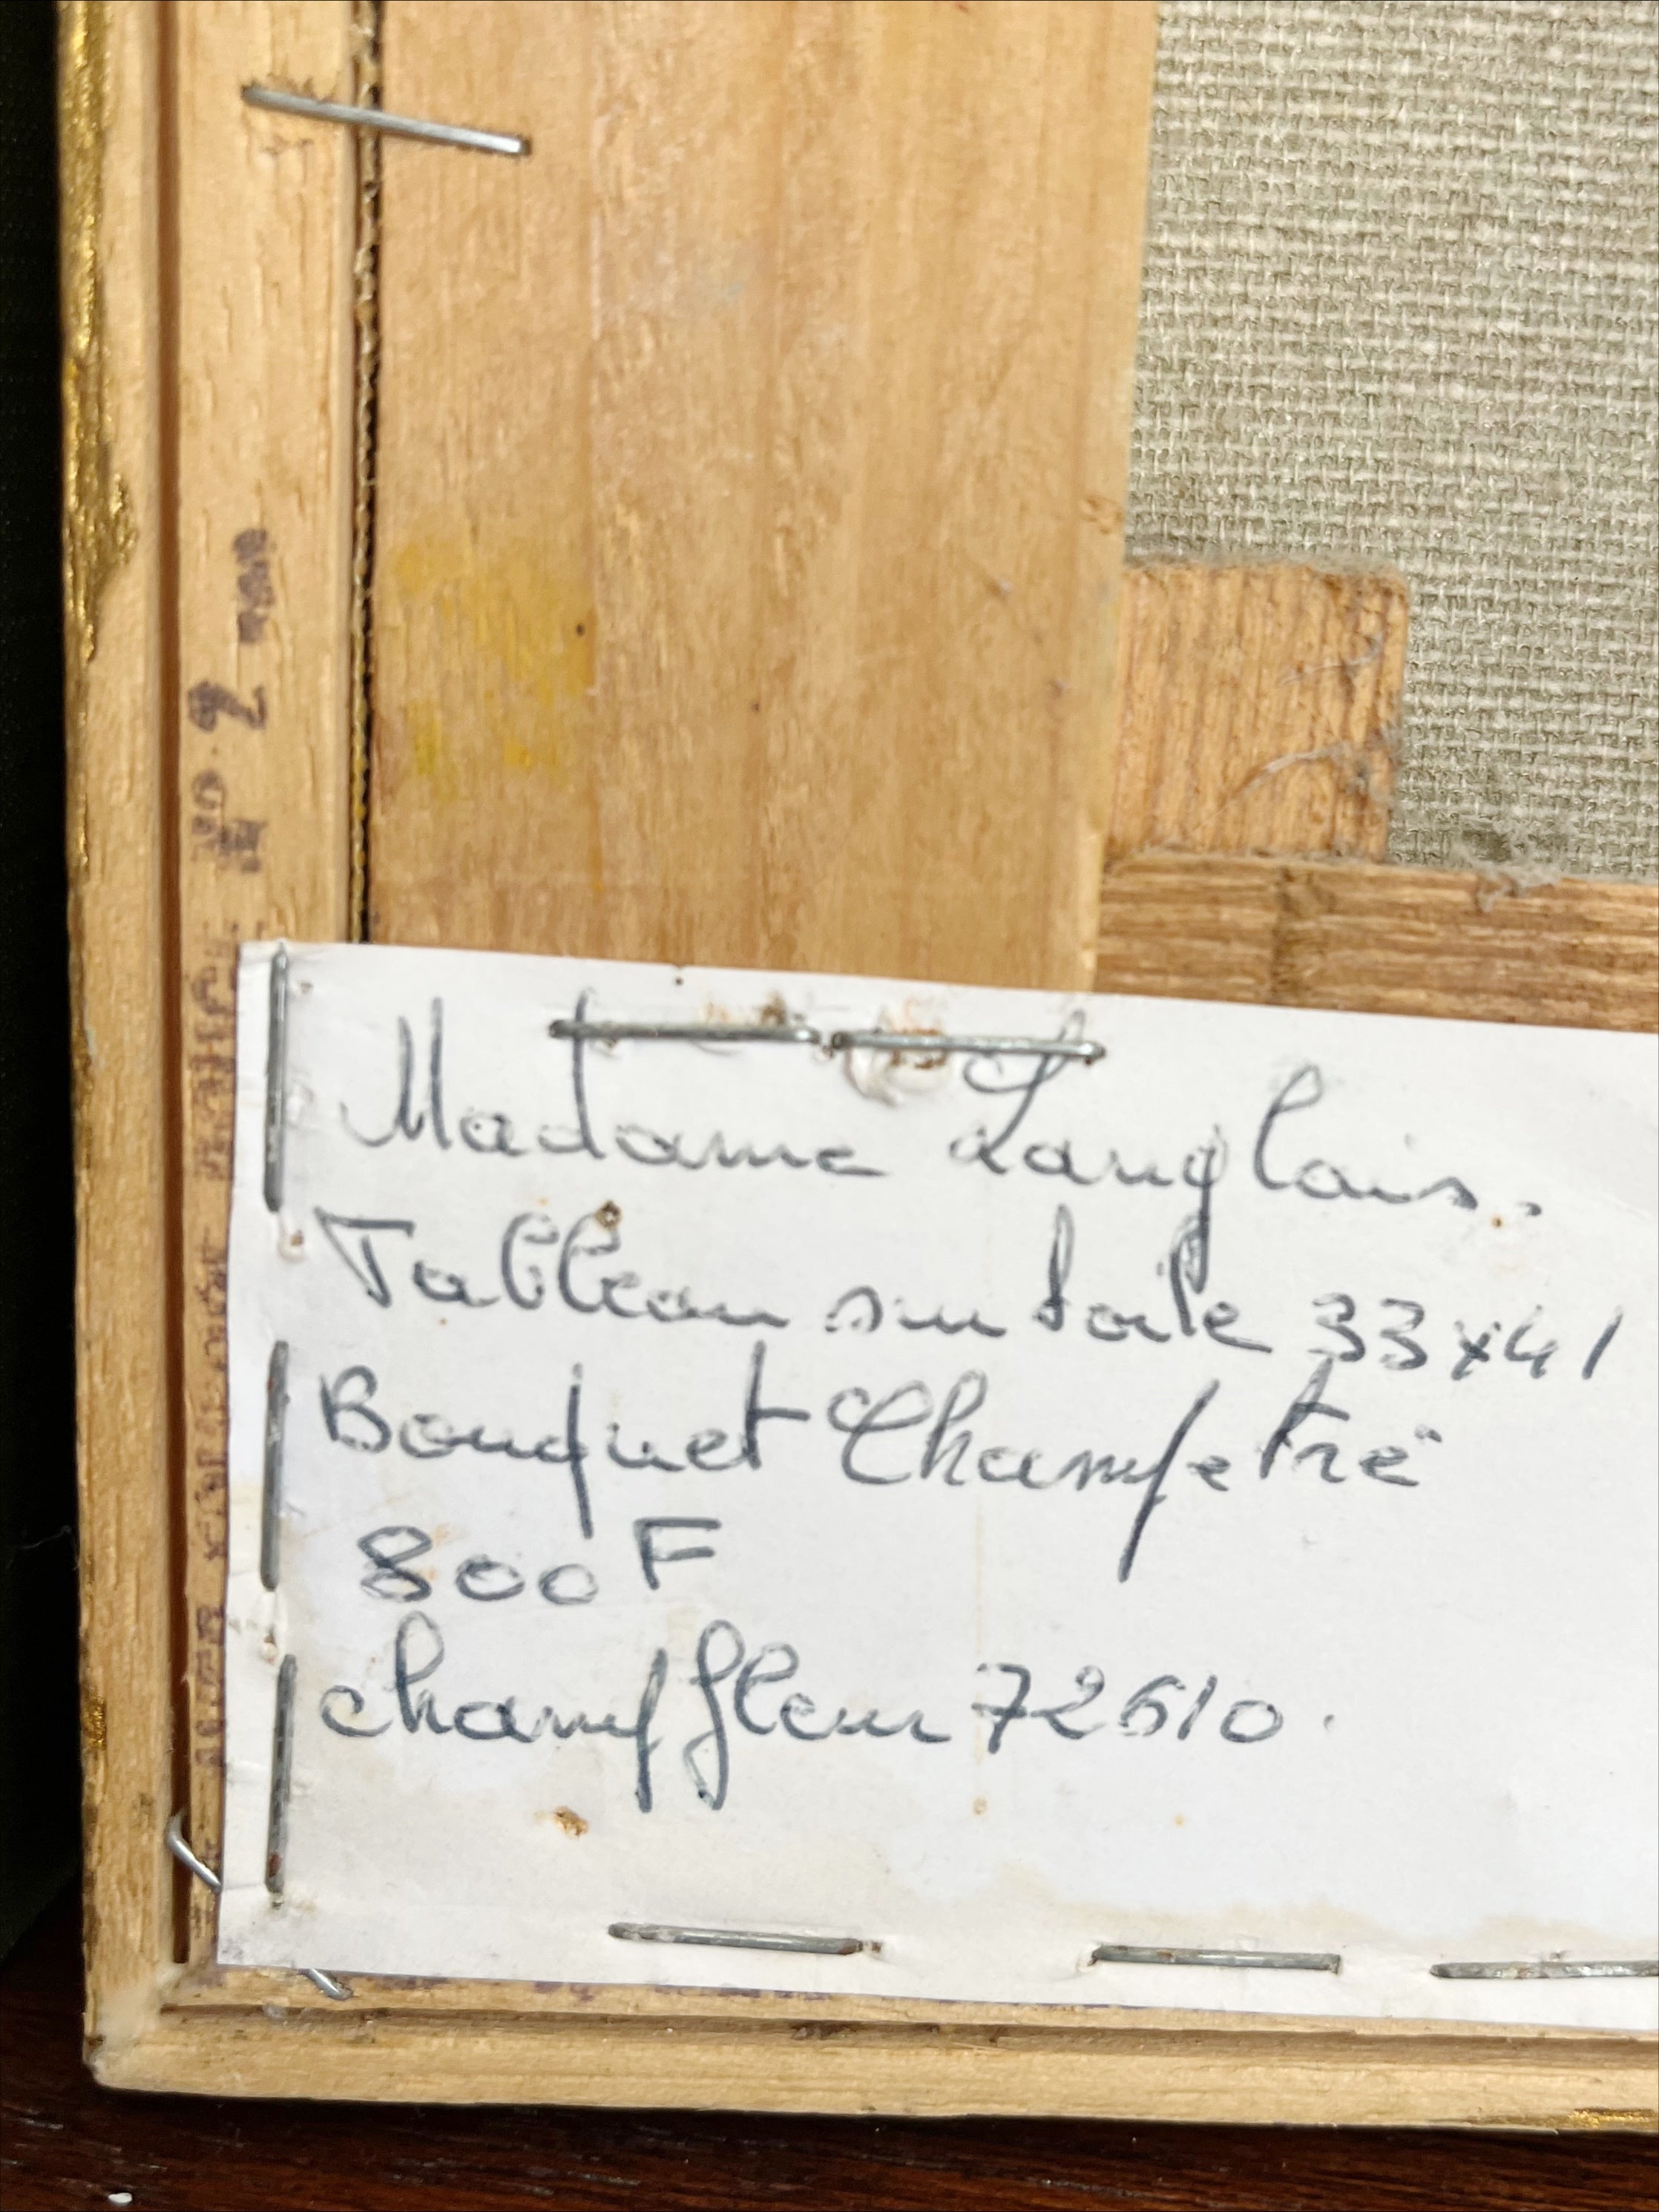 Madame Langlais.
Tableau sur toile 33x41
Bouquet Champetre
800 F
champfleur 72610.